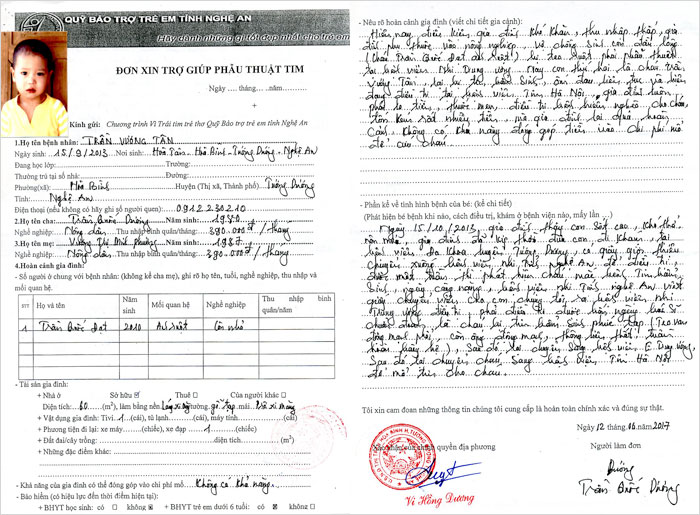 QUỸ BẢO TRỢ TRẺ EM TỈNH NGHỆ AN
Hãy dành những gì tốt đẹp nhất cho trẻ em
ĐƠN XIN TRỢ GIÚP PHẪU THUẬT TIM
Ngày .... tháng....năm........
Kính gửi: Chương trình Vì Trái tim trẻ thơ Quỹ Bảo trợ trẻ em tỉnh Nghệ An
1.Họ tên bệnh nhân: TRẦN VƯƠNG TÂN
Ngày sinh: 15/9/2013 Nơi sinh: Hoà Bình - Tương Dương - Nghệ An
Đang học lớp: Trường:
Thường trú tại số nhà: Đường:
Phường(xã): Hoà Bình Huyện (Thị xã, Thành phố) Tương Dương
Tỉnh: Nghệ An
Điện thoại (nếu không có hãy ghi số người quen): 0912230210
2.Họ tên cha: Trần Quốc Dương Năm sinh: 1980
Nghề nghiệp: Nông dân Thu nhập bình quân/tháng: 380.000đ/tháng
3.Họ tên mẹ: Vương Thị Minh Phương Năm sinh: 1987
Nghề nghiệp: Nông dân Thu nhập bình quân/tháng: 390.000đ/tháng
4.Hoàn cảnh gia đình:
- Số người ở chung với bệnh nhân: (không kể cha mẹ), ghi rõ họ tên, tuổi, nghề nghiệp, thu nhập và
mối quan hệ.
STT Họ và tên Năm sinh Mối quan hệ Nghề nghiệp Thu nhập bình quân/năm
1 Trần Quốc Đạt 2010 Anh ruột Còn nhỏ
- Tài sản gia đình:
+ Nhà ở Sở hữu Thuê Của người khác
Diện tích: 60 (m²), làm bằng nền Láng xi măng tường gỗ tạp mái
+ Vật dụng gia đình: Tivi 1 (cái), tủ lạnh (cái), máy tính (cái).
+ Phương tiện đi lại: xe máy (chiếc), xe đạp 1 (chiếc)
+ Đất đai/cây trồng: diện tích (m²)
+ Những đặc điểm khác:
- Khả năng của gia đình có thể đóng góp vào chi phí mổ: Không có khả năng.
- Bảo hiểm (có hiệu lực đến thời điểm hiện tại):
+ BHYT học sinh: có không + BHYT trẻ em dưới 6 tuổi: có không
- Nêu rõ hoàn cảnh gia đình (viết chi tiết gia cảnh):
Hiện nay điều kiện gia đình khó khăn, thu nhập thấp, gia
đình phụ thuộc vào nông nghiệp. Vợ chồng sinh con đầu lòng
(Cháu Trần Quốc Đạt phải phẫu thuật
tại bệnh viện Nhi Trung ương. Nay con thứ hai là cháu Trần
Vương Tân, lại bị tim bẩm sinh
đang điều trị tại bệnh viện Tim Hà Nội, gia đình luôn
phải lo tiền, thuốc men, điều trị bệnh hiểm nghèo cho cháu,
tốn kém rất nhiều tiền, mà gia đình lại quá khó
khăn, không có khả năng đóng góp tiền vào chi phí mổ
để cứu cháu.
- Phần kể về tình hình bệnh của bé: (kể chi tiết)
(Phát hiện bé bệnh khi nào, cách điều trị, khám ở bệnh viện nào, mấy lần ...)
Ngày 15/10/2013, gia đình thấy con sốt cao, khó thở,
nôn mửa, gia đình đã kịp thời đưa con đi khám tại
bệnh viện Đa khoa huyện Tương Dương
chuyển xuống bệnh viện Nhi tỉnh Nghệ An để điều trị,
được một thời gian thì phát hiện cháu mắc bệnh Tim bẩm
Sinh, ngày càng nặng, bệnh viện nhi tỉnh Nghệ An viết
giấy chuyển viện cho con chúng tôi ra bệnh viện nhi
Trung ương điều trị
chẩn đoán là cháu bị tim bẩm sinh phức tạp
Sau đó tại chuyển sang bệnh viện E Trung ương,
Sau đó tại chuyển cháu sang bệnh viện Tim Hà Nội
để mổ tim cho cháu.
Tôi xin cam đoan những thông tin chúng tôi cung cấp là hoàn toàn chính xác và đúng sự thật.
Ngày 12 tháng 06 năm 2017
chính quyền địa phương Người làm đơn
Dương
Vi Hồng Dương Trần Quốc Dương